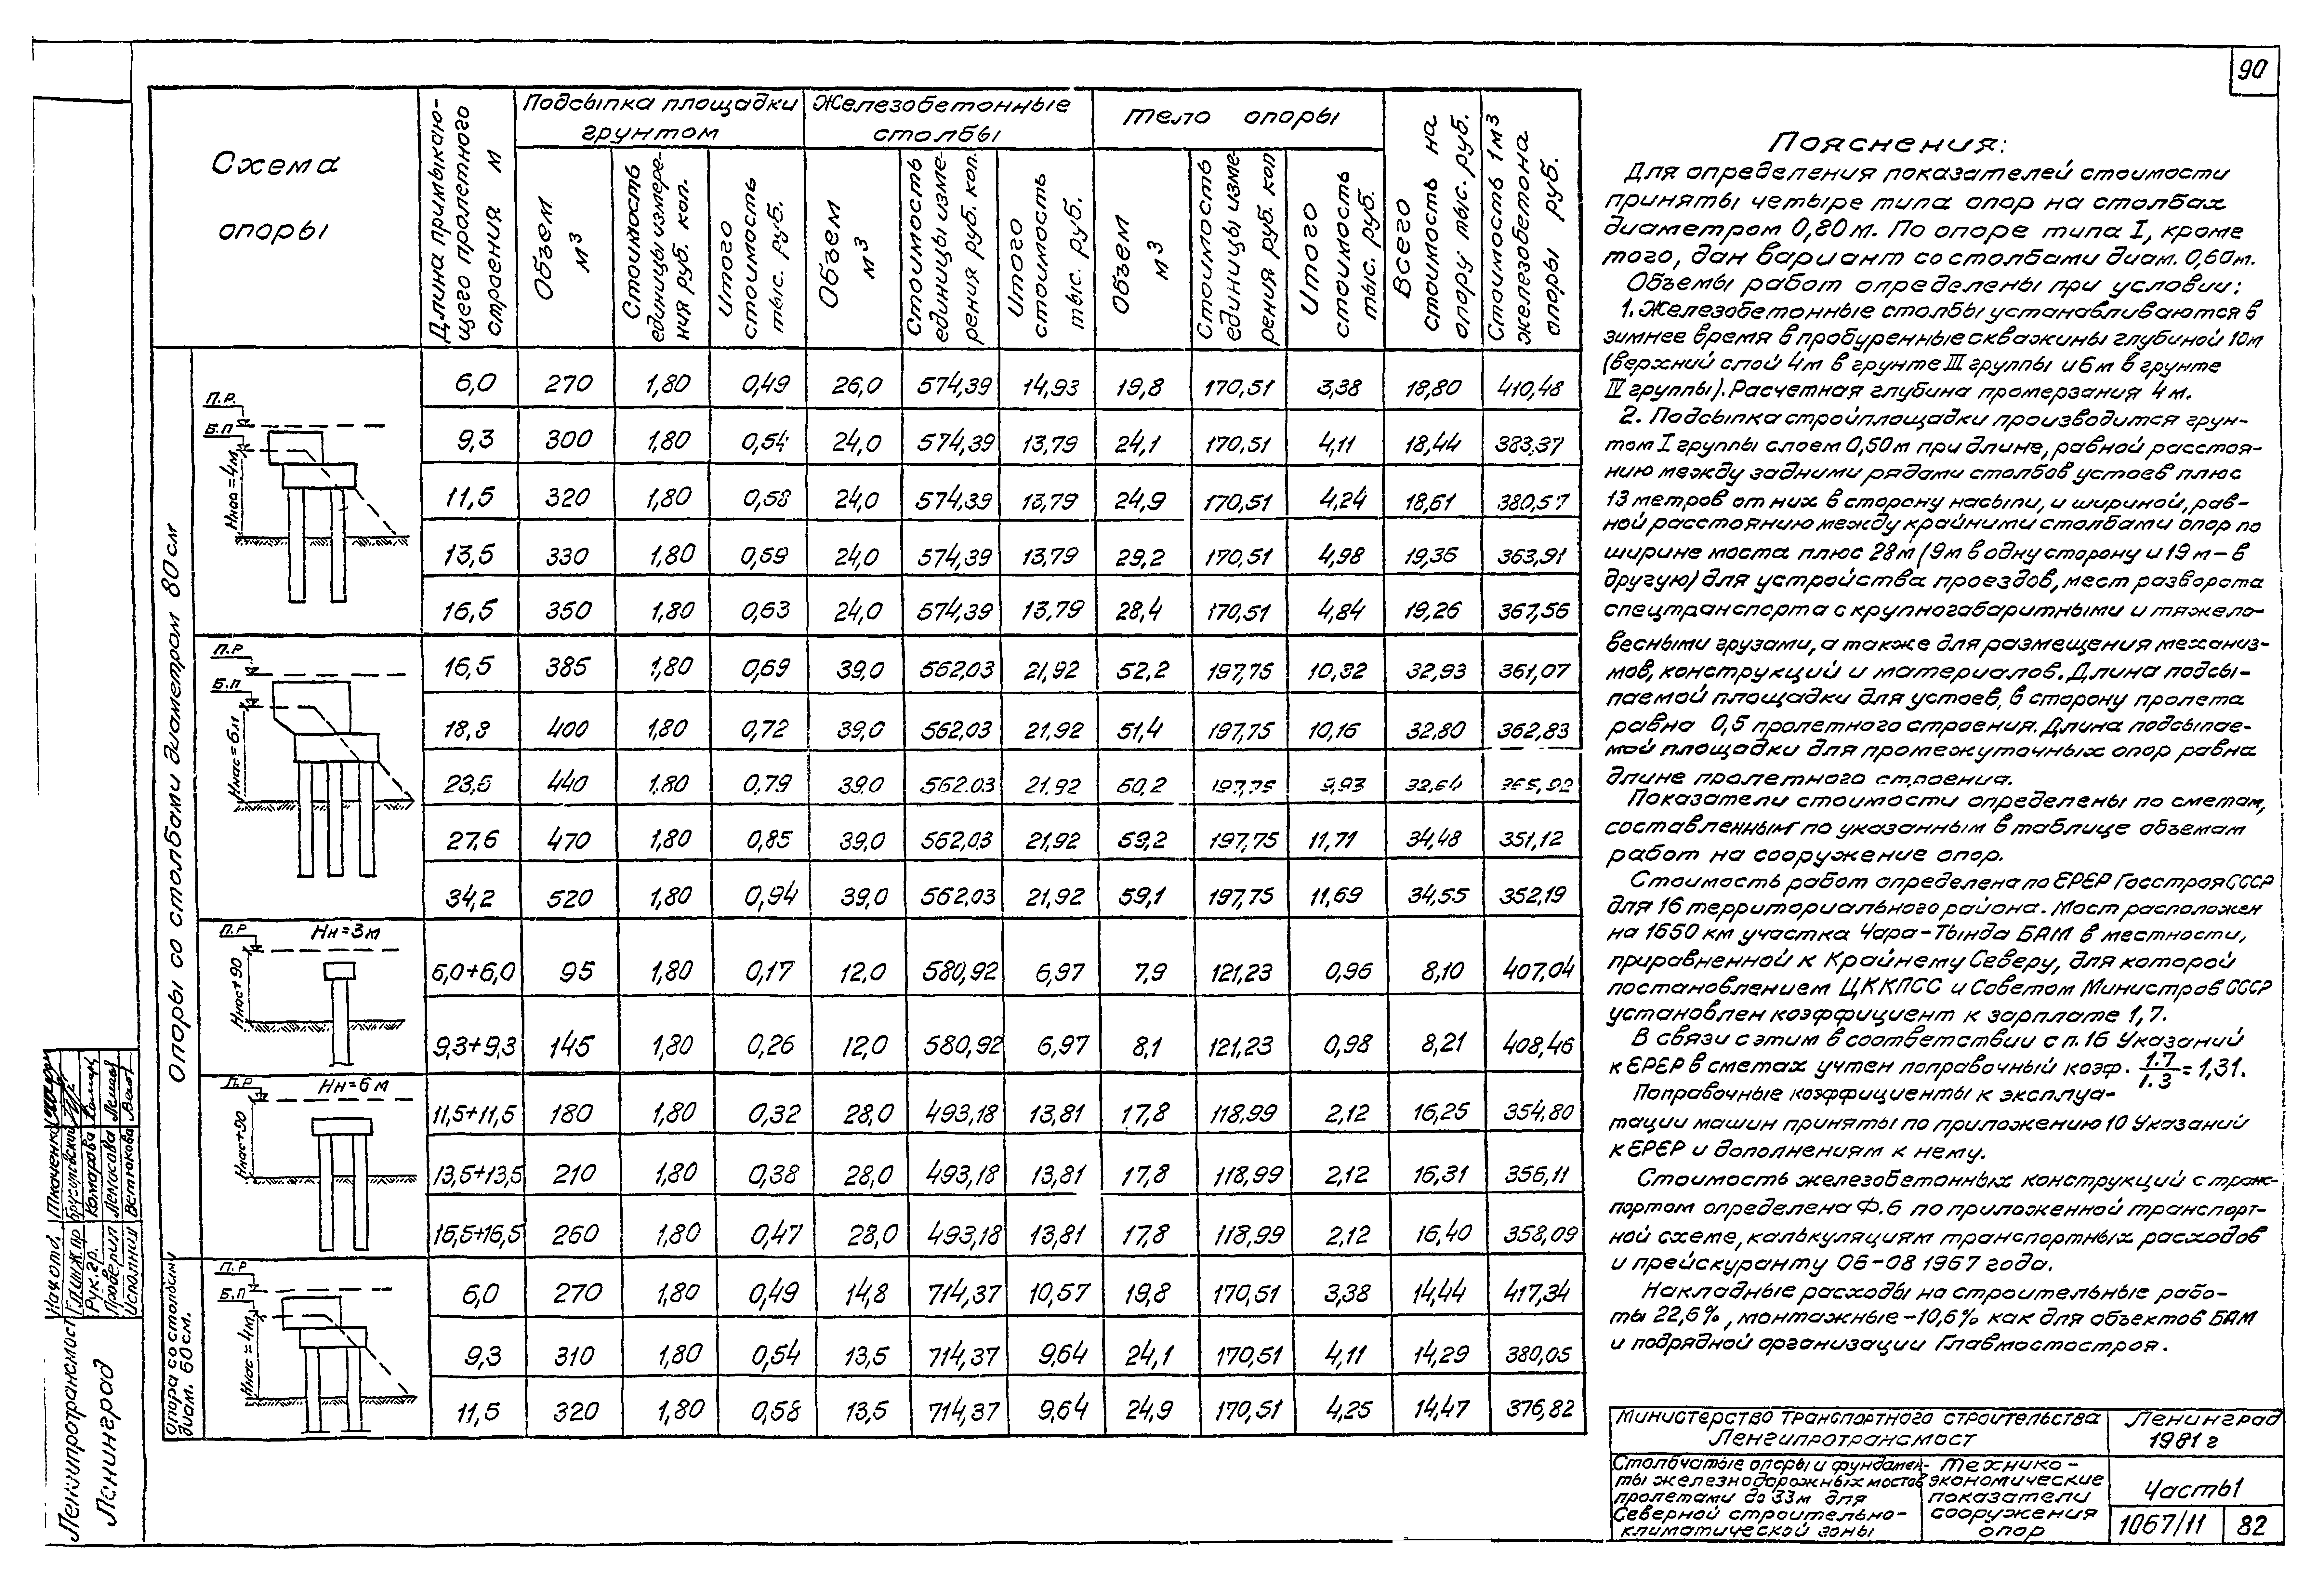 90
Схема
опоры
Длина примыкаю-
щего пролетного
строения м
Подсыпка площадки
грунтом
Железобетонные
столбы
Тело опоры
Объем
м³
Стоимость
единицы измере-
ния руб. коп.
Итого
стоимость
тыс. руб.
Объем
м³
Стоимость
единицы изме-
рения руб. коп.
Итого
стоимость
тыс. руб.
Объем
м³
Стоимость
единицы изме-
рения руб. коп
Итого
стоимость
тыс. руб.
Всего
стоимость на
опору тыс. руб.
Стоимость 1м³
железобетона
опоры руб.
Опоры со столбами диаметром 80 см
П.Р.
Б.П
Ннас = 4м
6,0 270 1,80 0,49 26,0 574,39 14,93 19,8 170,51 3,38 18,80 410,48
9,3 300 1,80 0,54 24,0 574,39 13,79 24,1 170,51 4,11 18,44 383,37
11,5 320 1,80 0,58 24,0 574,39 13,79 24,9 170,51 4,24 18,61 380,57
13,5 330 1,80 0,59 24,0 574,39 13,79 29,2 170,51 4,98 19,36 363,91
16,5 350 1,80 0,63 24,0 574,39 13,79 28,4 170,51 4,84 19,26 367,56
П.Р
Б.П
Ннас = 6м
16,5 385 1,80 0,69 39,0 562,03 21,92 52,2 197,75 10,32 32,93 361,07
18,8 400 1,80 0,72 39,0 562,03 21,92 51,4 197,75 10,16 32,80 362,83
23,6 440 1.80 0,79 39.0 562.03 21.92 197,75 9,93 32,64
27,6 470 1,80 0,85 39,0 562,03 21,92 59,2 197,75 11,71 34,48 351,12
34,2 520 1,80 0,94 39,0 562,03 21,92 59,1 197,75 11,69 34,55 352,19
П.Р
Нн = 3м
Ннас+90
6,0+6,0 95 1,80 0,17 12,0 580,92 6,97 7,9 121,23 0,96 8,10 407,04
9,3+9,3 145 1,80 0,26 12,0 580,92 6,97 8,1 121,23 0,98 8,21 408,46
П.Р
Нн = 6м
Ннас+90
11,5+11,5 180 1,80 0,32 28,0 493,18 13,81 17,8 118,99 2,12 16,25 354,80
13,5+13,5 210 1,80 0,38 28,0 493,18 13,81 17,8 118,99 2,12 16,31 356,11
16,5+16,5 260 1,80 0,47 28,0 493,18 13,81 17,8 118,99 2,12 16,40 358,09
Опора со столбами
диам. 60 см.
П.Р
Б.П
Ннас = 4м
6,0 270 1,80 0,49 14,8 714,37 10,57 19,8 170,51 3,38 14,44 417,34
9,3 310 1,80 0,54 13,5 714,37 9,64 24,1 170,51 4,11 14,29 380,05
11,5 320 1,80 0,58 13,5 714,37 9,64 24,9 170,51 4,25 14,47 376,82
Пояснения:
Для определения показателей стоимости
приняты четыре типа опор на столбах
диаметром 0,80м. По опоре типа I, кроме
того, дан вариант со столбами диам. 0,60м.
Объемы работ определены при условии:
1. Железобетонные столбы устанавливаются в
зимнее время в пробуренные скважины глубиной 10м
(верхний слой 4м в грунте III группы и 6м в грунте
IV группы). Расчетная глубина промерзания 4м.
2. Подсыпка стройплощадки производится грун-
том I группы слоем 0,50м при длине, равной расстоя-
нию между задними рядами столбов устоев плюс
13 метров от них в сторону насыпи, и шириной, рав-
ной расстоянию между крайними столбами опор по
ширине моста плюс 28м (9м в одну сторону и 19м – в
другую) для устройства проездов, мест разворота
спецтранспорта с крупногабаритными и тяжело-
весными грузами, а также для размещения механиз-
мов, конструкций и материалов. Длина подсы-
паемой площадки для устоев в сторону пролета
равна 0,5 пролетного строения. Длина подсыпае-
мой площадки для промежуточных опор равна
длине пролетного строения.
Показатели стоимости определены по сметам,
составленным по указанным в таблице объемам
работ на сооружение опор.
Стоимость работ определена по ЕРЕР Госстроя СССР
для 16 территориального района. Мост расположен
на 1650 км участка Чара-Тында БАМ в местности,
приравненной к Крайнему Северу, для которой
постановлением ЦК КПСС и Советом Министров СССР
установлен коэффициент к зарплате 1,7.
В связи с этим в соответствии с п. 16 Указаний
к ЕРЕР в сметах учтен поправочный коэф. 1.7/1.3 = 1,31.
Поправочные коэффициенты к эксплуа-
тации машин приняты по приложению 10 Указаний
к ЕРЕР и дополнениям к нему.
Стоимость железобетонных конструкций с транс-
портом определена Ф.6 по приложенной транспорт-
ной схеме, калькуляциям транспортных расходов
и прейскуранту 06-08 1967 года.
Накладные расходы на строительные рабо-
ты 22,6%, монтажные – 10,6% как для объектов БАМ
и подрядной организации Главмостостроя.
Министерство транспортного строительства
Ленгипротрансмост
Ленинград
1981 г
Столбчатые опоры и фундамен-
ты железнодорожных мостов
пролетами до 33м для
Северной строительно-
климатической зоны
Технико-
экономические
показатели
сооружения
опор
Часть 1
1067/11
82
Ленгипротрансмост
Ленинград
Нач. отд. Ткаченко
Гл. инж. пр
Рук. гр. Комарова
Проверил
Исполнил Ветюкова